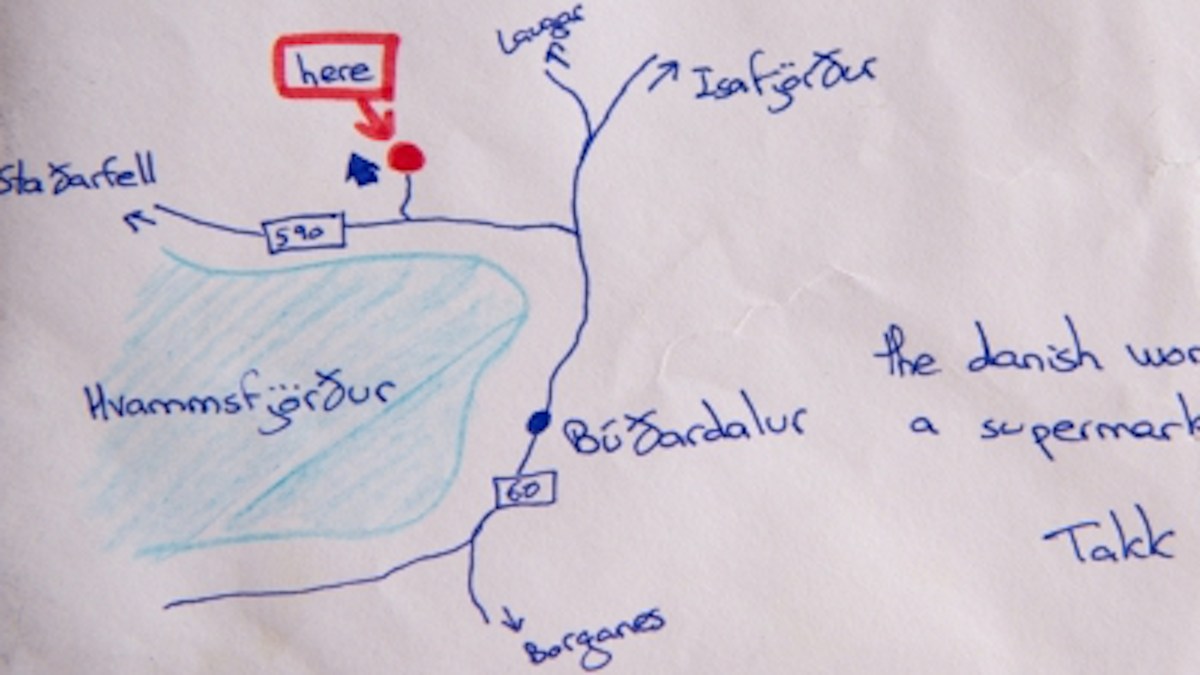 Laugar
Isafjörður
here
Staðarfell
590
Hvammsfjörður
Búðardalur
60
Borganes
the danish wor
a supermark
Takk